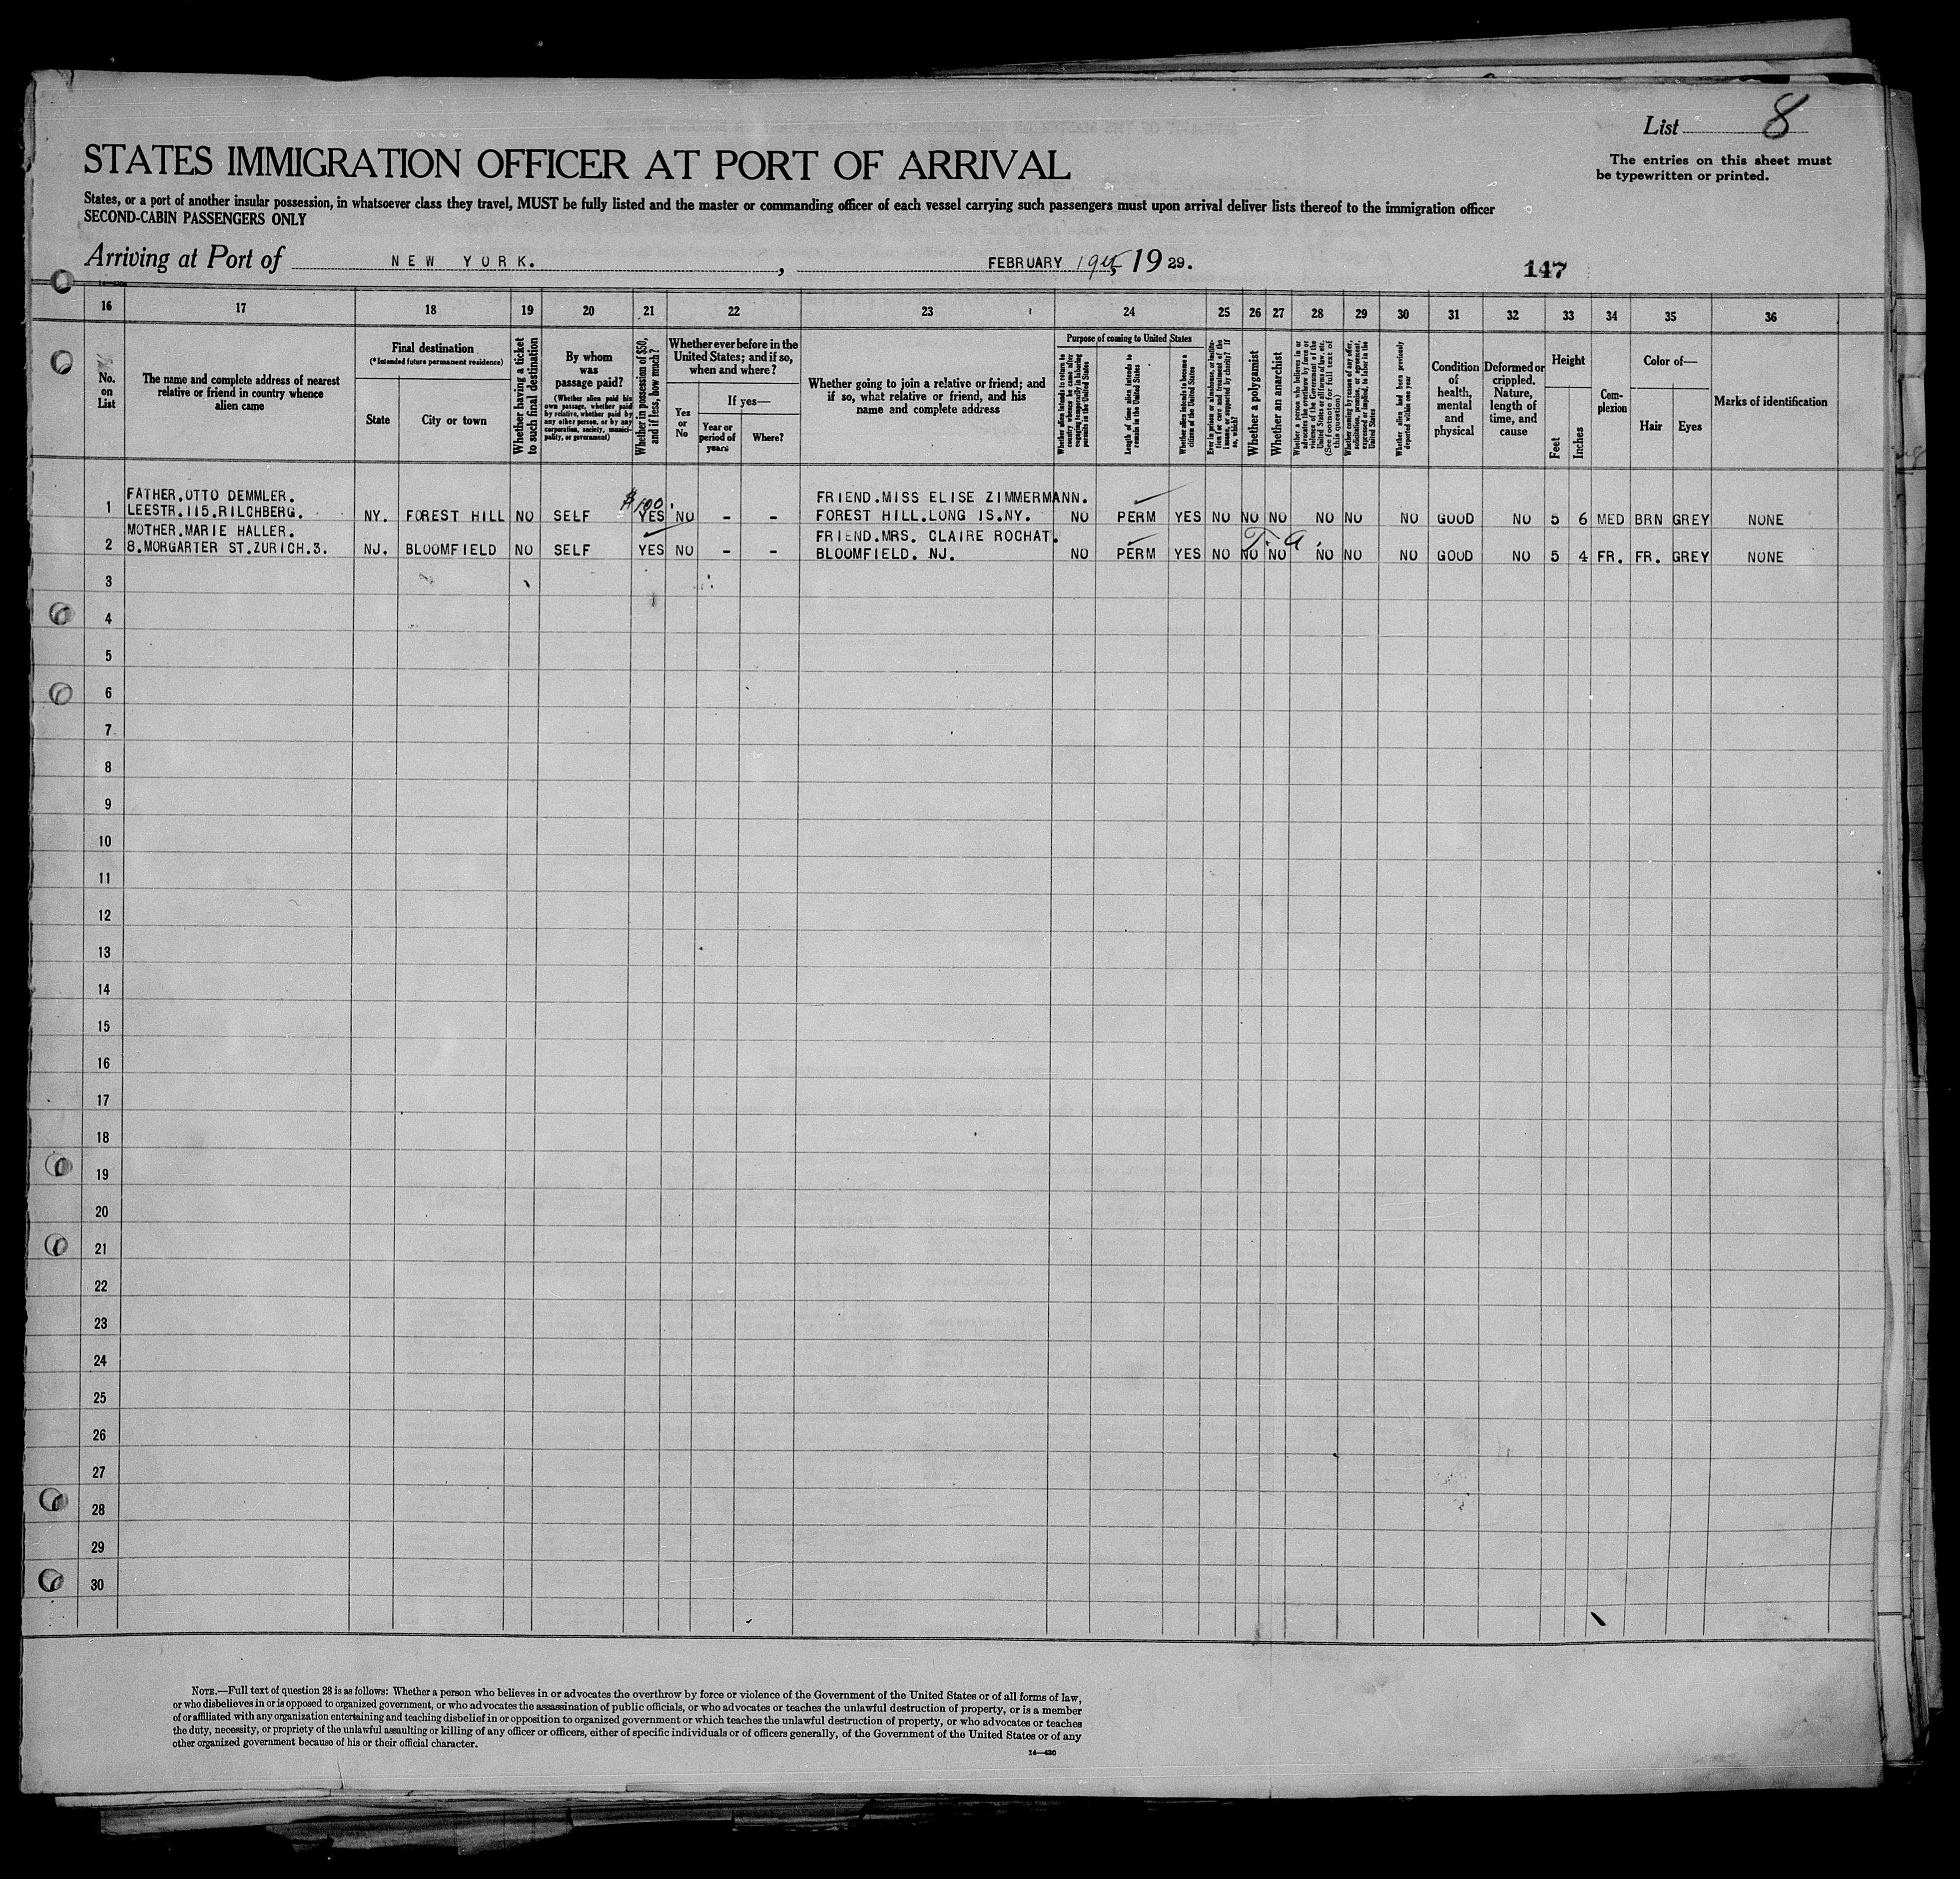 List 8
The entries on this sheet must
be typewritten or printed.
STATES IMMIGRATION OFFICER AT PORT OF ARRIVAL
States, or a port of another insular possession, in whatsoever class they travel, MUST be fully listed and the master or commanding officer of each vessel carrying such passengers must upon arrival deliver lists thereof to the immigration officer
SECOND-CABIN PASSENGERS ONLY
Arriving at Port of NEW YORK. , FEBRUARY 19th 1929.
147
16 17 18 19 20 21 22 23 24 25 26 27 28 29 30 31 32 33 34 35 36
No.
on
List
The name and complete address of nearest
relative or friend in country whence
alien came
Final destination
(*Intended future permanent residence)
State
City or town
Whether having a ticket
to such final destination
By whom
was
passage paid?
(Whether alien paid his
own passage, whether paid
by relative, whether paid by
any other person, or by any
corporation, society, munici-
pality, or government)
Whether in possession of $50,
and if less, how much?
Whether ever before in the
United States; and if so,
when and where?
Yes
or
No
If yes—
Year or
period of
years
Where?
Whether going to join a relative or friend; and
if so, what relative or friend, and his
name and complete address
Purpose of coming to United States
Whether alien intends to return to
country whence he came after
engaging temporarily in laboring
pursuits in the United States
Length of time alien intends to
remain in the United States
Whether alien intends to become a
citizen of the United States
Ever in prison or almshouse, or institu-
tion for care and treatment of the
insane, or supported by charity? If
so, which?
Whether a polygamist
Whether an anarchist
Whether a person who believes in or
advocates the overthrow by force or
violence of the Government of the
United States or all forms of law, etc.
(See footnote for full text of
this question)
Whether coming by reason of any offer,
solicitation, promise, or agreement,
expressed or implied, to labor in the
United States
Whether alien had been previously
deported within one year
Condition
of
health,
mental
and
physical
Deformed or
crippled.
Nature,
length of
time, and
cause
Height
Feet
Inches
Com-
plexion
Color of—
Hair
Eyes
Marks of identification
FATHER.OTTO DEMMLER. $100. FRIEND.MISS ELISE ZIMMERMANN.
1 LEESTR.115.RILCHBERG. NY. FOREST HILL NO SELF YES NO - - FOREST HILL.LONG IS.NY. NO PERM YES NO NO NO NO NO NO GOOD NO 5 6 MED BRN GREY NONE
MOTHER.MARIE HALLER. FRIEND.MRS. CLAIRE ROCHAT.
2 8.MORGARTER ST.ZURICH.3. NJ. BLOOMFIELD NO SELF YES NO - - BLOOMFIELD. NJ. NO PERM YES NO NO NO NO NO NO GOOD NO 5 4 FR. FR. GREY NONE
3
4
5
6
7
8
9
10
11
12
13
14
15
16
17
18
19
20
21
22
23
24
25
26
27
28
29
30
NOTE.—Full text of question 28 is as follows: Whether a person who believes in or advocates the overthrow by force or violence of the Government of the United States or of all forms of law,
or who disbelieves in or is opposed to organized government, or who advocates the assassination of public officials, or who advocates or teaches the unlawful destruction of property, or is a member
of or affiliated with any organization entertaining and teaching disbelief in or opposition to organized government or which teaches the unlawful destruction of property, or who advocates or teaches
the duty, necessity, or propriety of the unlawful assaulting or killing of any officer or officers, either of specific individuals or of officers generally, of the Government of the United States or of any
other organized government because of his or their official character.
14—430